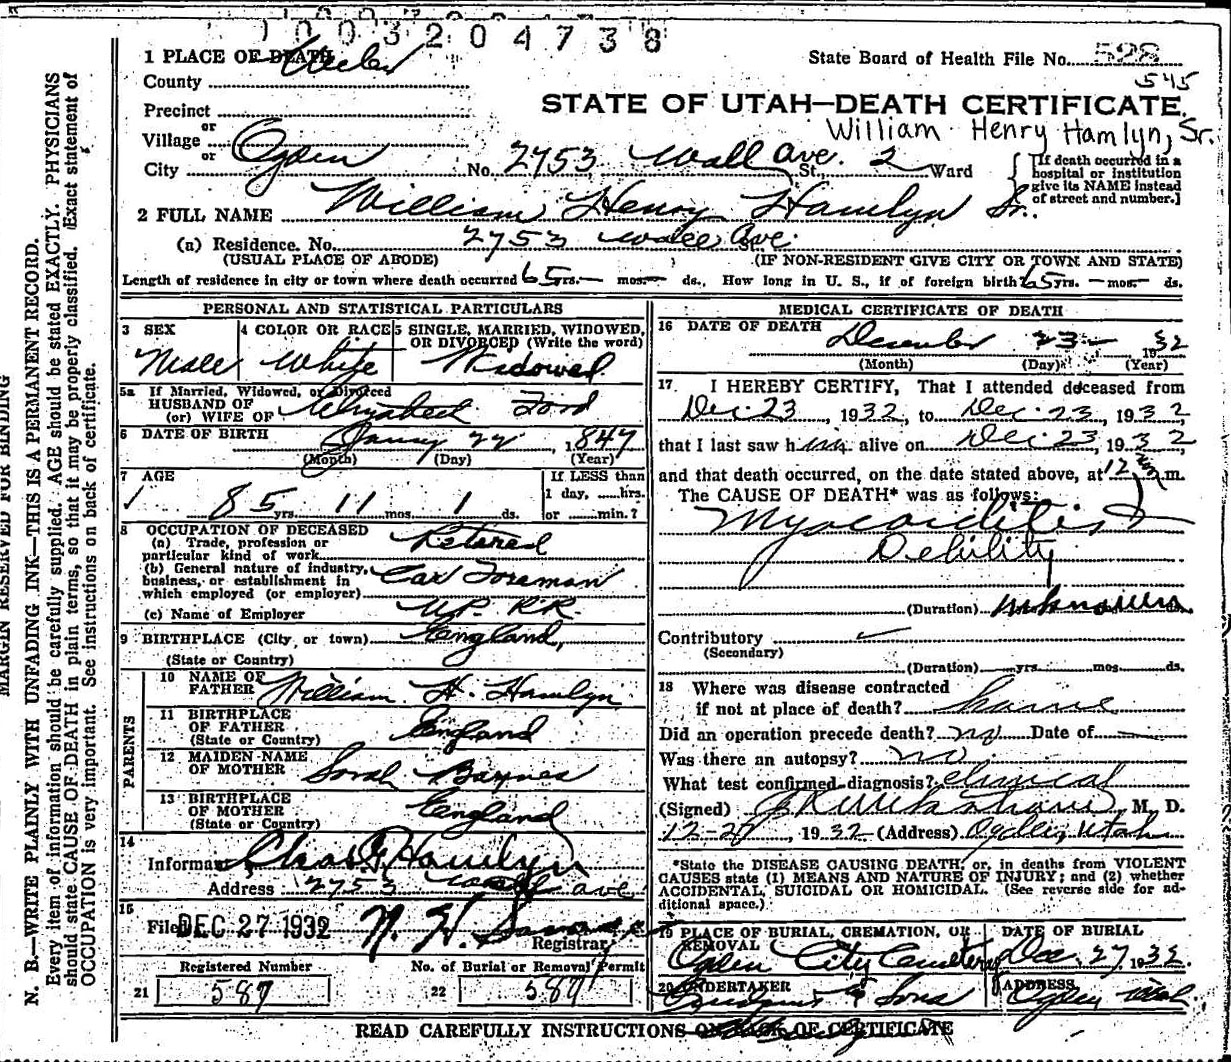 1003204738
1 PLACE OF DEATH
State Board of Health File No. 528
County Weber
545
STATE OF UTAH—DEATH CERTIFICATE.
Precinct
William Henry Hamlyn, Sr.
Village or
City or Ogden No. 2753 Wall Ave. St., 2 Ward
{ [If death occurred in a hospital or institution give its NAME instead of street and number.]
2 FULL NAME William Henry Hamlyn Sr.
(a) Residence. No. 2753 Wall Ave. St.
(USUAL PLACE OF ABODE) (IF NON-RESIDENT GIVE CITY OR TOWN AND STATE)
Length of residence in city or town where death occurred 65 yrs. — mos. — ds., How long in U. S., if of foreign birth 65 yrs. — mos. — ds.
PERSONAL AND STATISTICAL PARTICULARS
3 SEX Male
4 COLOR OR RACE White
5 SINGLE, MARRIED, WIDOWED, OR DIVORCED (Write the word) Widowed
5a If Married, Widowed, or Divorced
HUSBAND OF
(or) WIFE OF Elizabeth Ford
6 DATE OF BIRTH January 22 1847
(Month) (Day) (Year)
7 AGE 85 yrs. 11 mos. 1 ds.
If LESS than
1 day, ......hrs.
or ......min.?
8 OCCUPATION OF DECEASED
(a) Trade, profession or
particular kind of work Retired
(b) General nature of industry,
business, or establishment in
which employed (or employer) Car Foreman
(c) Name of Employer U.P. R.R.
9 BIRTHPLACE (City or town) England
(State or Country)
PARENTS
10 NAME OF FATHER William H. Hamlyn
11 BIRTHPLACE OF FATHER England
(State or Country)
12 MAIDEN NAME OF MOTHER Sarah Baynes
13 BIRTHPLACE OF MOTHER England
(State or Country)
14
Informant Chas. F. Hamlyn
Address 2753 Wall ave
15
Filed DEC 27 1932 N. H. Savage
Registrar
Registered Number
21 587
No. of Burial or Removal Permit
22 587
MEDICAL CERTIFICATE OF DEATH
16 DATE OF DEATH December 23 — 1932
(Month) (Day) (Year)
17. I HEREBY CERTIFY, That I attended deceased from
Dec. 23, 1932, to Dec. 23, 1932
that I last saw him alive on Dec 23, 1932
and that death occurred, on the date stated above, at 12 m.
The CAUSE OF DEATH* was as follows:
Myocarditis +
Debility
(Duration) unknown
Contributory
(Secondary)
(Duration) yrs. mos. ds.
18 Where was disease contracted
if not at place of death? home
Did an operation precede death? no Date of —
Was there an autopsy? no
What test confirmed diagnosis? clinical
(Signed) M. D.
12-27, 1932 (Address) Ogden, Utah
*State the DISEASE CAUSING DEATH, or, in deaths from VIOLENT
CAUSES state (1) MEANS AND NATURE OF INJURY; and (2) whether
ACCIDENTAL, SUICIDAL OR HOMICIDAL. (See reverse side for ad-
ditional space.)
19 PLACE OF BURIAL, CREMATION, OR REMOVAL
Ogden City Cemetery
DATE OF BURIAL
Dec. 27 1932.
20 UNDERTAKER
& Sons
ADDRESS
Ogden Utah
READ CAREFULLY INSTRUCTIONS ON BACK OF CERTIFICATE
MARGIN RESERVED FOR BINDING
N. B.—WRITE PLAINLY WITH UNFADING INK—THIS IS A PERMANENT RECORD.
Every item of information should be carefully supplied. AGE should be stated EXACTLY. PHYSICIANS
should state CAUSE OF DEATH in plain terms, so that it may be properly classified. Exact statement of
OCCUPATION is very important. See instructions on back of certificate.